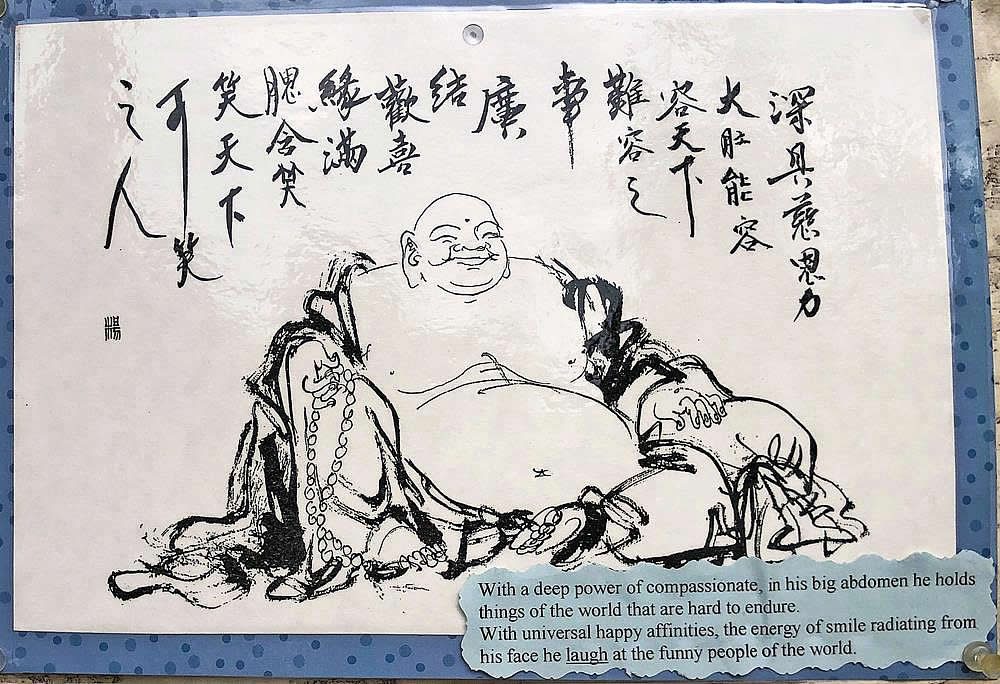 深具慈恩力
大肚能容
容天下
難容之
事
廣
結
歡喜
緣滿
腮含笑
笑天下
可笑
之人
With a deep power of compassionate, in his big abdomen he holds
things of the world that are hard to endure.
With universal happy affinities, the energy of smile radiating from
his face he laugh at the funny people of the world.